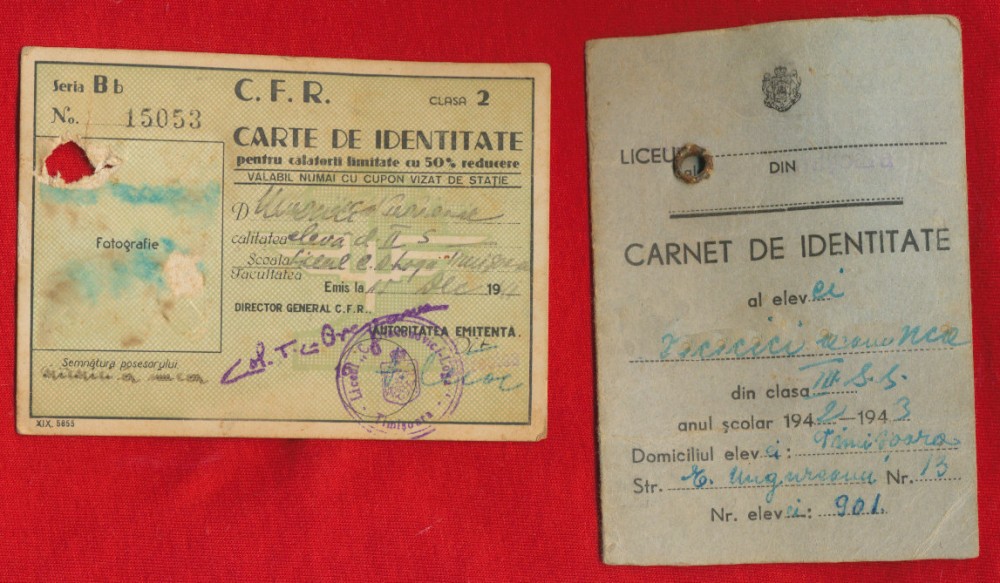 Seria Bb
No. 15053
C. F. R.
CLASA 2
CARTE DE IDENTITATE
pentru calatorii limitate cu 50% reducere
VALABIL NUMAI CU CUPON VIZAT DE STAȚIE
D
calitatea elevă
Școala Liceul C.
Facultatea
Emis la 15 Dec 194
DIRECTOR GENERAL C.F.R.
AUTORITATEA EMITENTA.
Fotografie
Semnătura posesorului
XIX. 5855
Timișoara
LICEUL
al
DIN
CARNET DE IDENTITATE
al elev ei
din clasa III S.S.
anul școlar 1942-1943
Domiciliul elev ei: Timișoara
Str. E. Ungureanu Nr. 13
Nr. elev ei: 901.